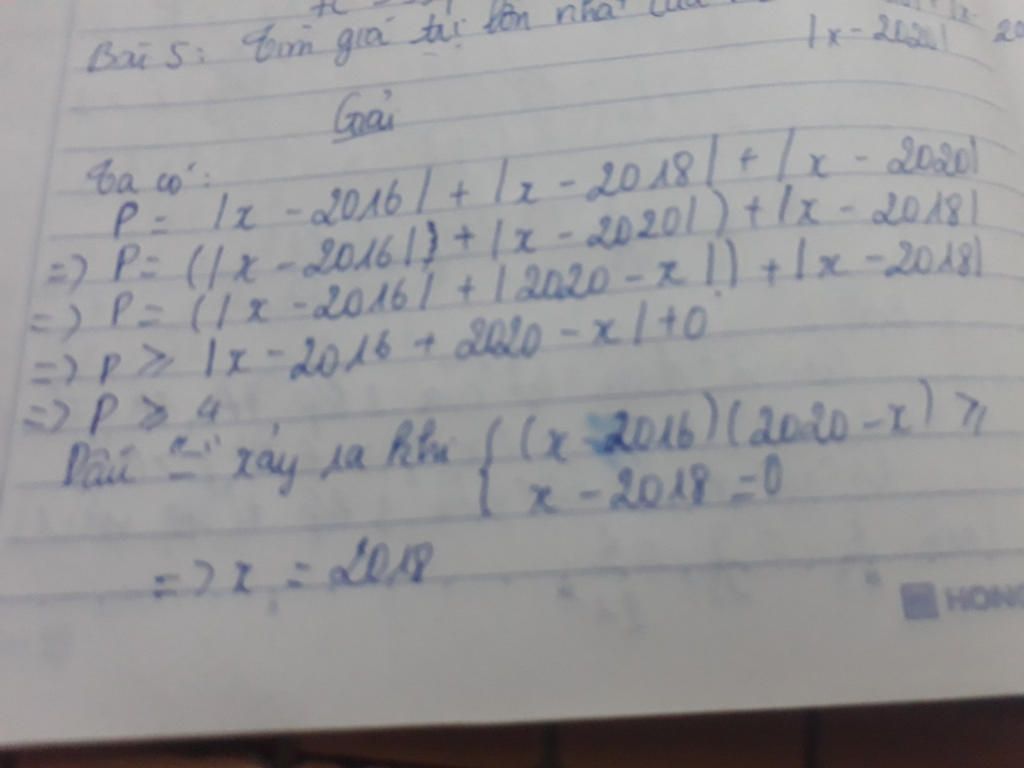 Bài 5: Tìm giá trị lớn nhất của
|x - 2020| 20
Giải
Ta có:
P = |x - 2016| + |x - 2018| + |x - 2020|
=> P = (|x - 2016|} + |x - 2020|) + |x - 2018|
=> P = (|x - 2016| + |2020 - x|) + |x - 2018|
=> P ≥ |x - 2016 + 2020 - x| + 0
=> P ≥ 4
Dấu "=" xảy ra khi { (x - 2016)(2020 - x) ≥
x - 2018 = 0
=> x = 2018
HONG